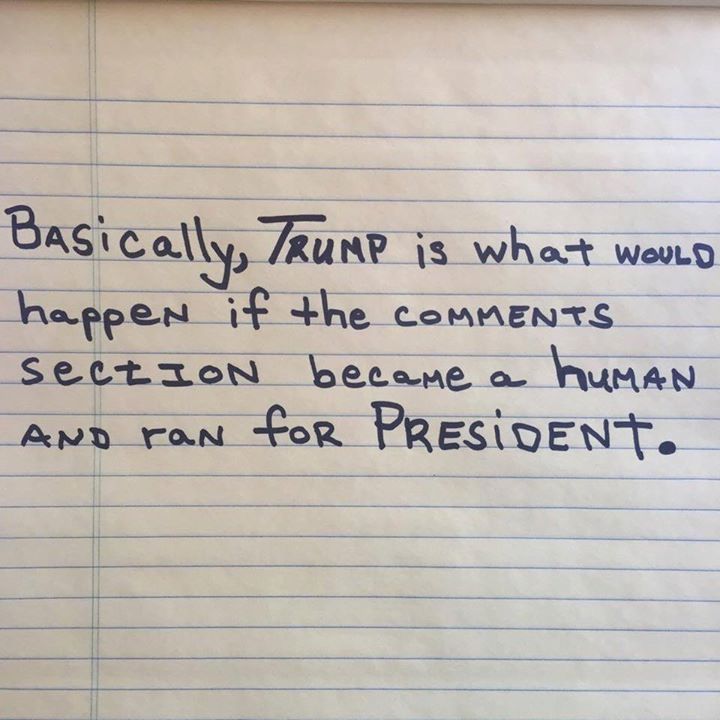 Basically, TRUMP is what WOULD
happeN if the COMMENTS
sectION became a huMAN
AND raN foR PRESiDENT.